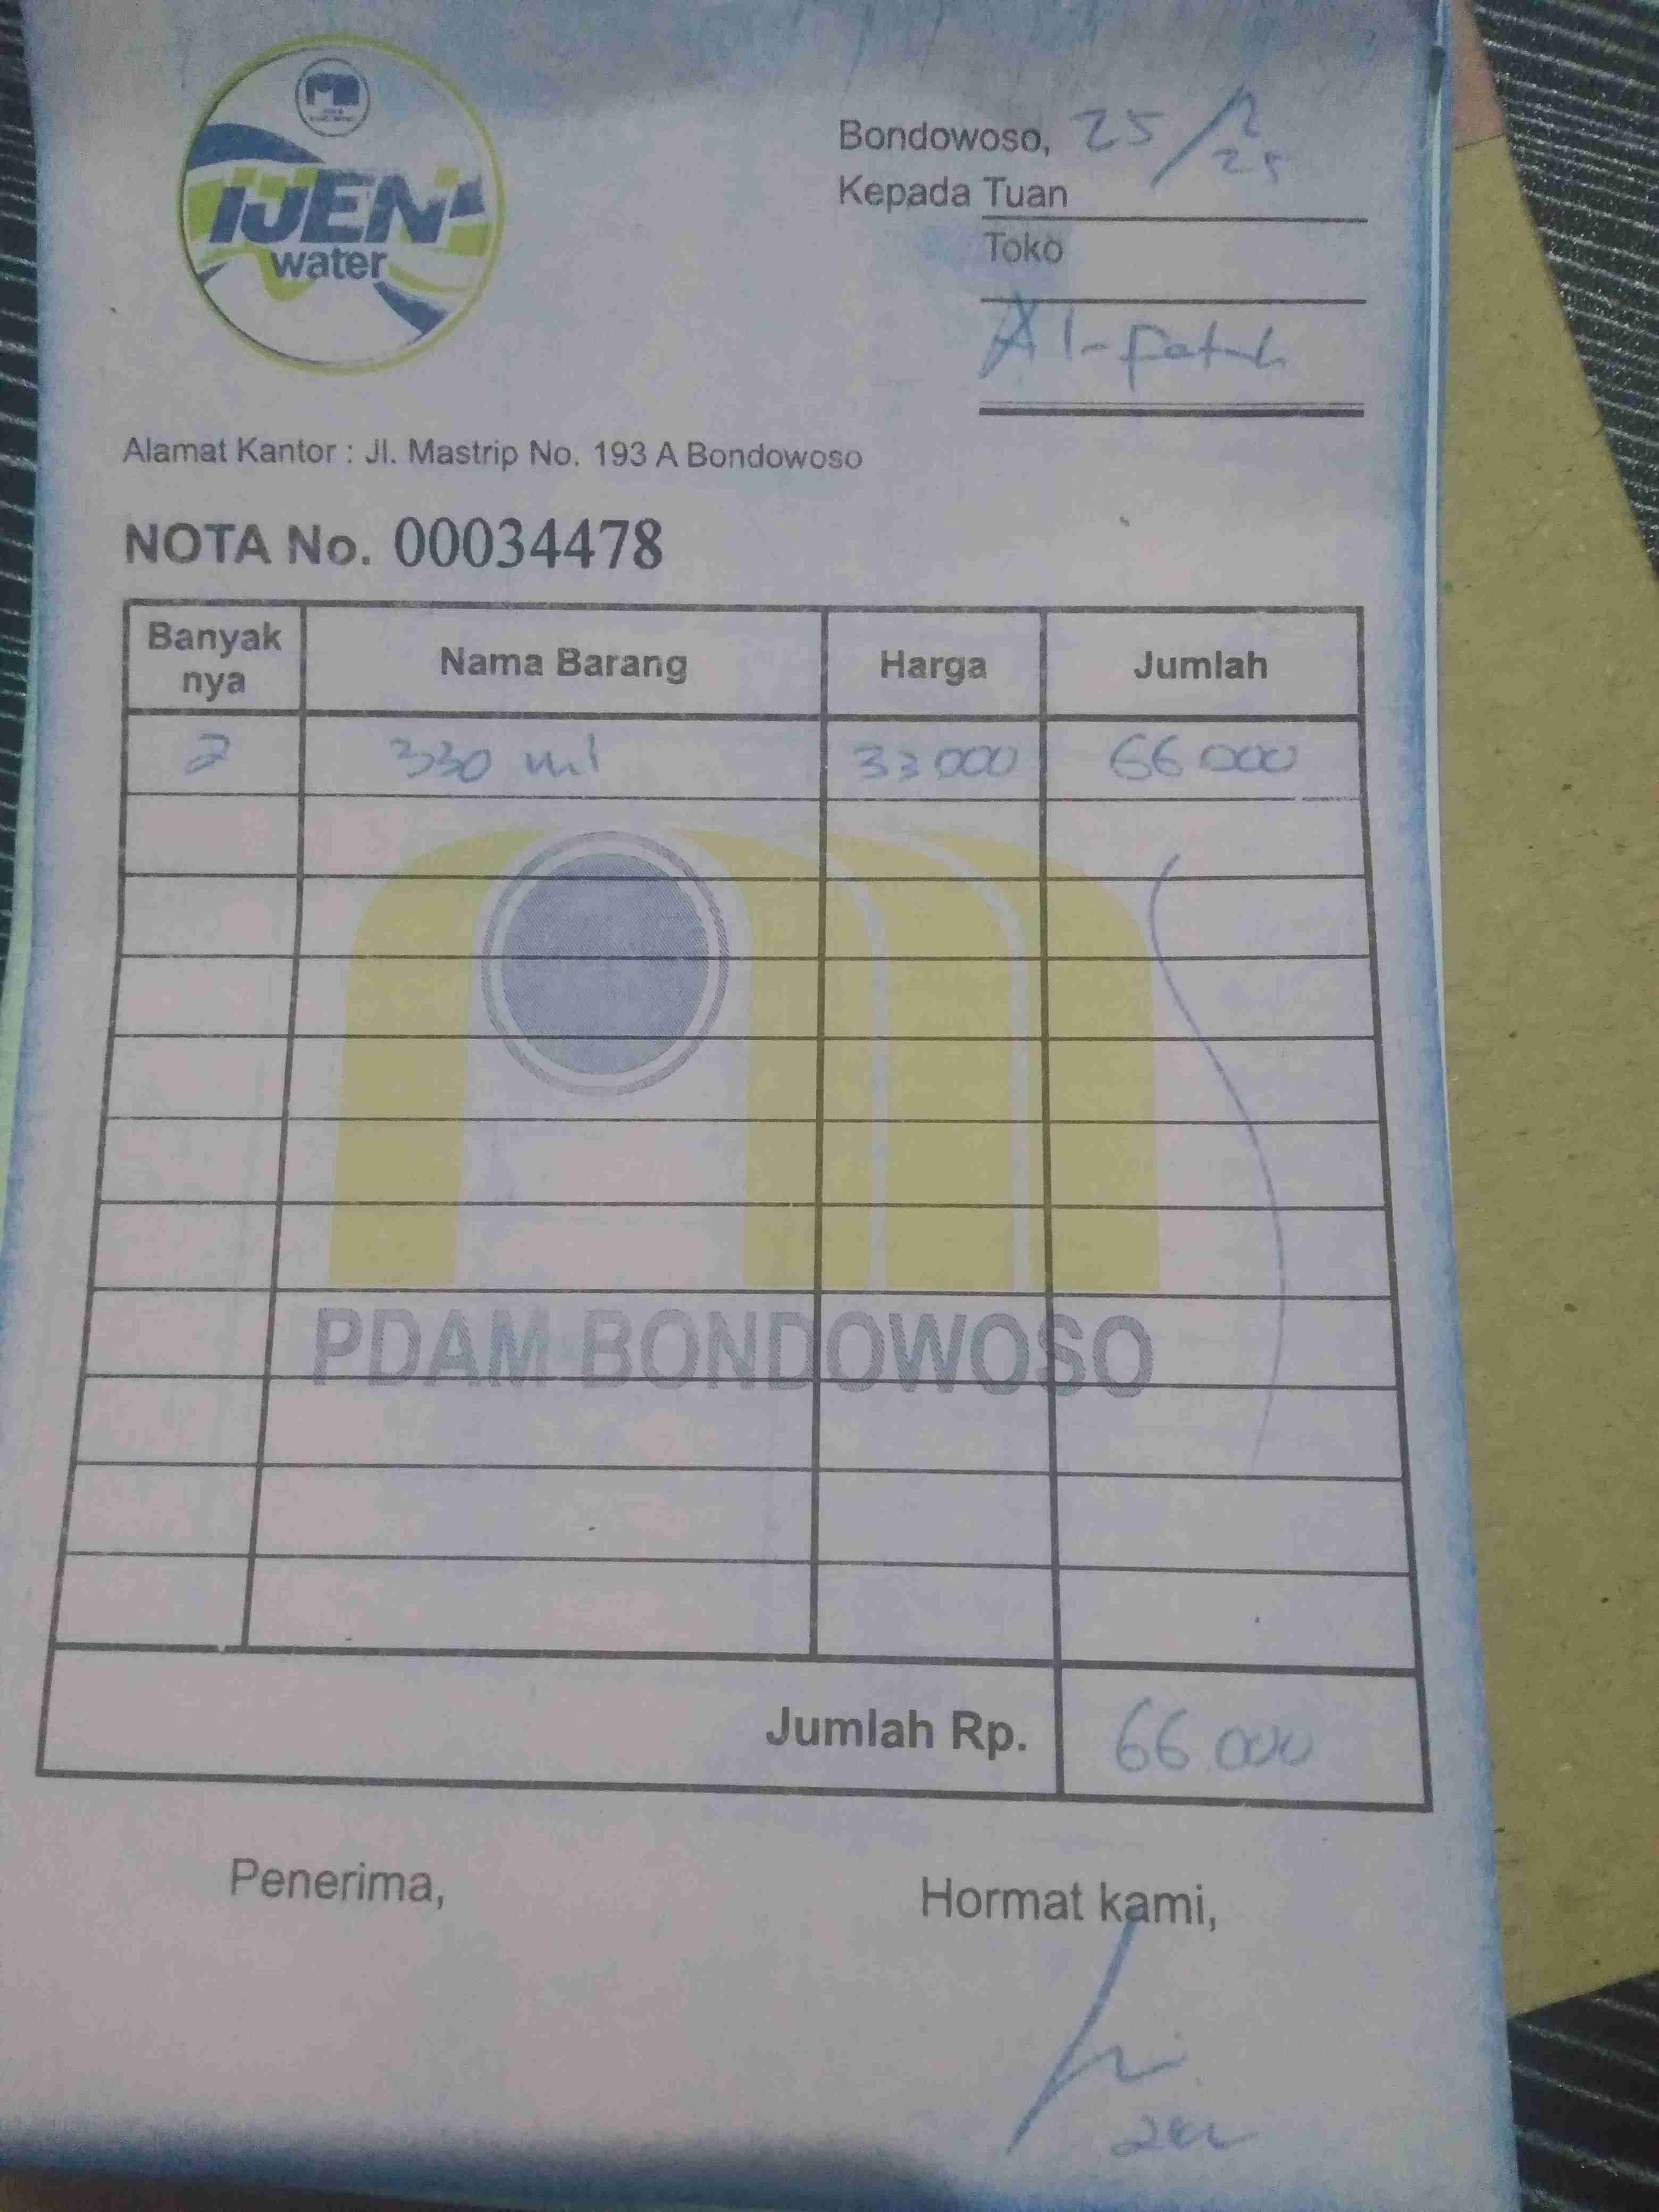 IJEN
water
Bondowoso, 25/2 25
Kepada Tuan
Toko
Al-fatah
Alamat Kantor : Jl. Mastrip No. 193 A Bondowoso
NOTA No. 00034478
Banyak nya Nama Barang Harga Jumlah
2 330 ml 33 000 66 000
PDAM BONDOWOSO
Jumlah Rp. 66 000
Penerima, Hormat kami,